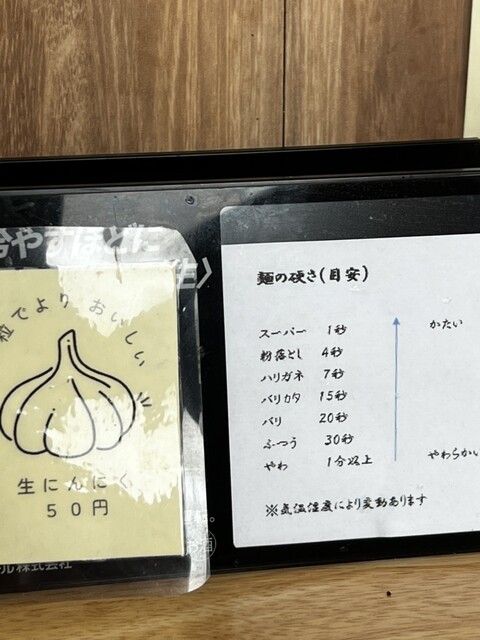 冷やすほどに
生〉
粒でより おいしい
生にんにく
50円
ル株式会社
麺の硬さ(目安)
スーパー 1秒
粉落とし 4秒
ハリガネ 7秒
バリカタ 15秒
バリ 20秒
ふつう 30秒
やわ 1分以上
かたい
やわらかい
※気温湿度により変動あります